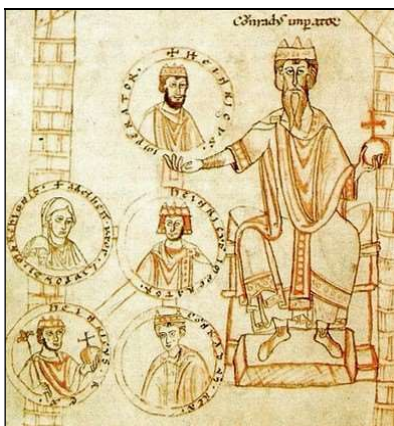 Cōnradꝰ imꝑatoꝛ
✠ HEINRICVS. IMPERATOR.
HEINRICVS IMPERATOR.
HEINRICVS REX
CONRADVS. REX.